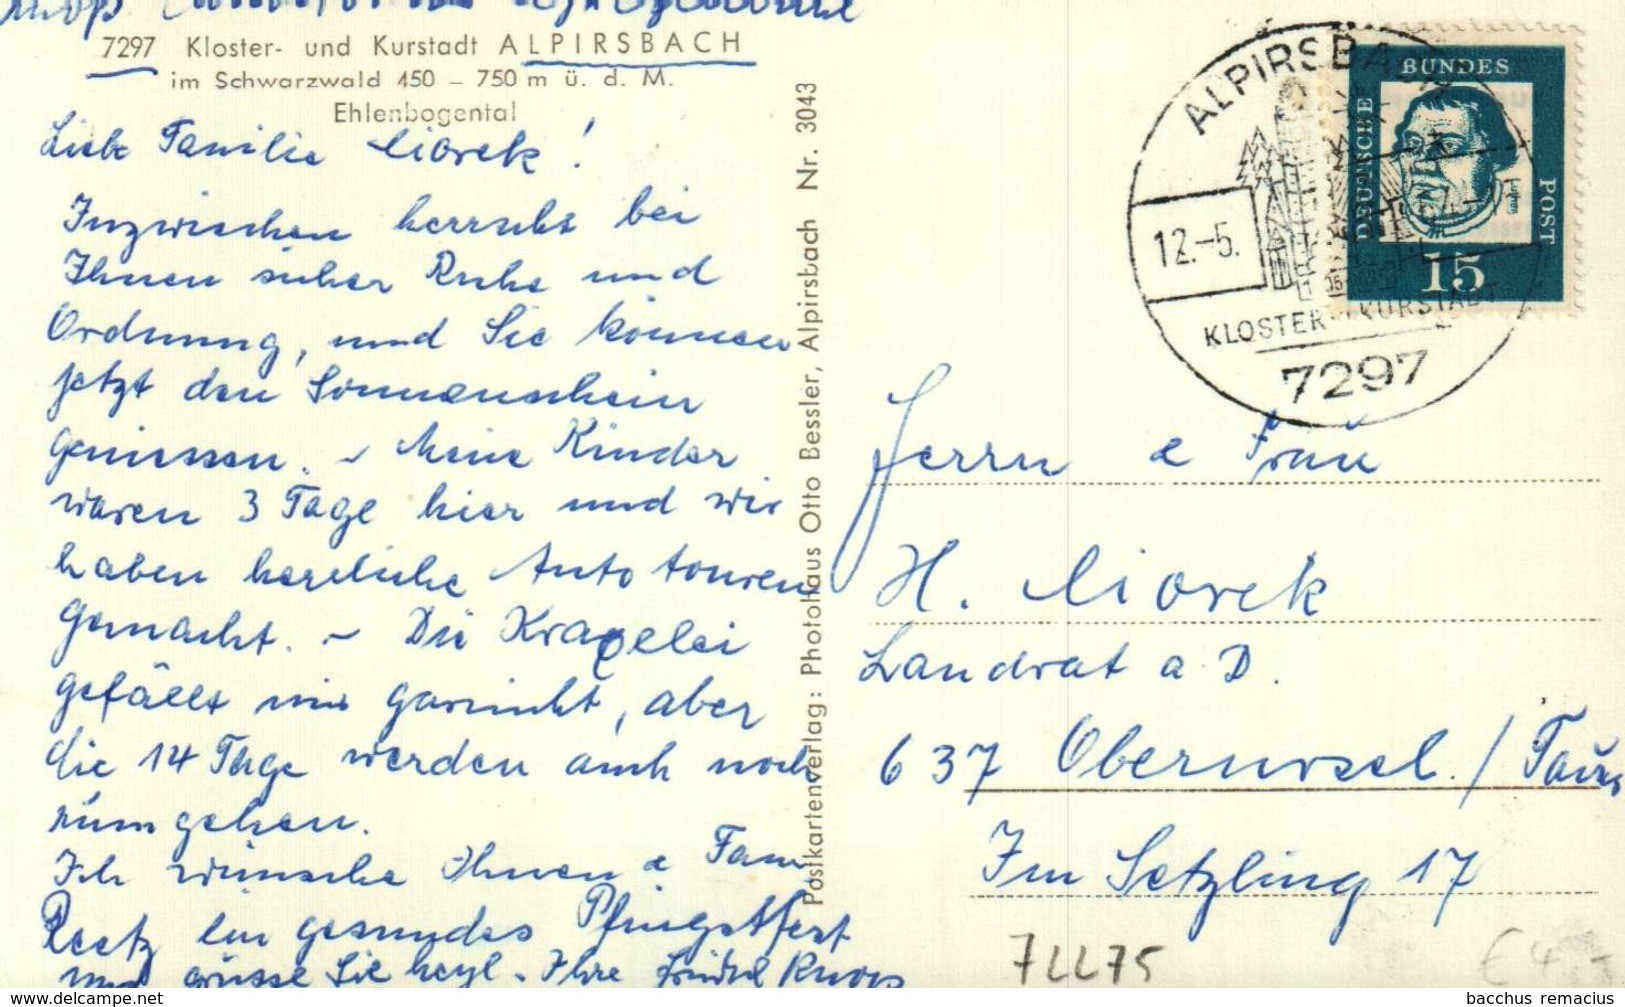 7297 Kloster- und Kurstadt ALPIRSBACH
im Schwarzwald 450 – 750 m ü. d. M.
Ehlenbogental
Liebe Familie Ciorek!
Inzwischen herrscht bei
Ihnen sicher Ruhe und
Ordnung, und Sie können
jetzt den Sonnenschein
geniessen. – Meine Kinder
waren 3 Tage hier und wir
haben herrliche Autotouren
gemacht. – Die
gefällt mir garnicht, aber
die 14 Tage werden auch noch
rumgehen.
Ich wünsche Ihnen & Fam
Reetz ein gesundes Pfingstfest
und grüsse Sie hezl. Ihre Knops
Postkartenverlag: Photohaus Otto Bessler, Alpirsbach Nr. 3043
ALPIRSBACH
12.-5.
KLOSTER- KURSTADT
7297
DEUTSCHE
BUNDES
POST
15
Herrn & Frau
H. Ciorek
Landrat a D.
637 Oberursel / Taunus
Im Setzling 17
7LL75
€ 4,-
bacchus remacius